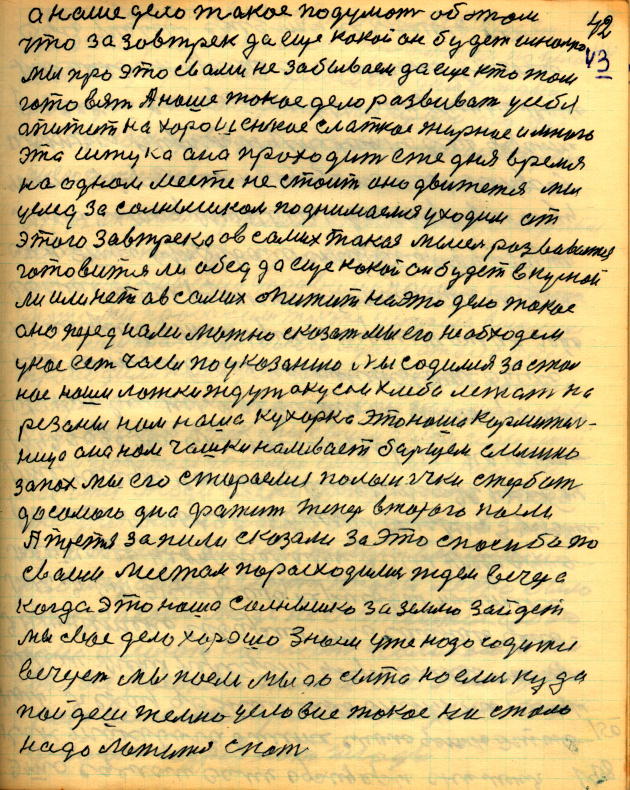 42
43
а наше дело такое подумат об этом
что за завтрек да еще какой он будет
мы про это свами не забываем да еще кто там
готовят А наше такое дело развиват усебя
апитит на хорошенкое слаткое жирное и много
эта штука ана проходит сте дня время
на одном месте не стоит оно движется мы
услед за солнышком поднимаемся уходим от
этого завтрека ов самих такая мысля развевается
готовится ли обед да еще какой он будет вкусной
ли или нет ов самих опитит на это дело такое
оно перед нами можно сказат мы его необходем
укое ест часы по указанию мы содимся за стол
ное наши ложки ждут а куски хлеба лежат на
резаны нам наша кухарка это наша кормител-
ница она нам чашки наливает барщем слышно
запах мы его стараемся полыгички стербат
до самого дна фатит тепер второго поели
А третя запили сказали за это спасиба по
своим местам порасходилис ждем вечера
когда это наша солнышко за землю зайдет
мы свое дело хорошо знаем уже надо содитс
вечерет мы поем мы до сыта наелис куда
пойдеш темно условие такое ни стало
надо ложится спат